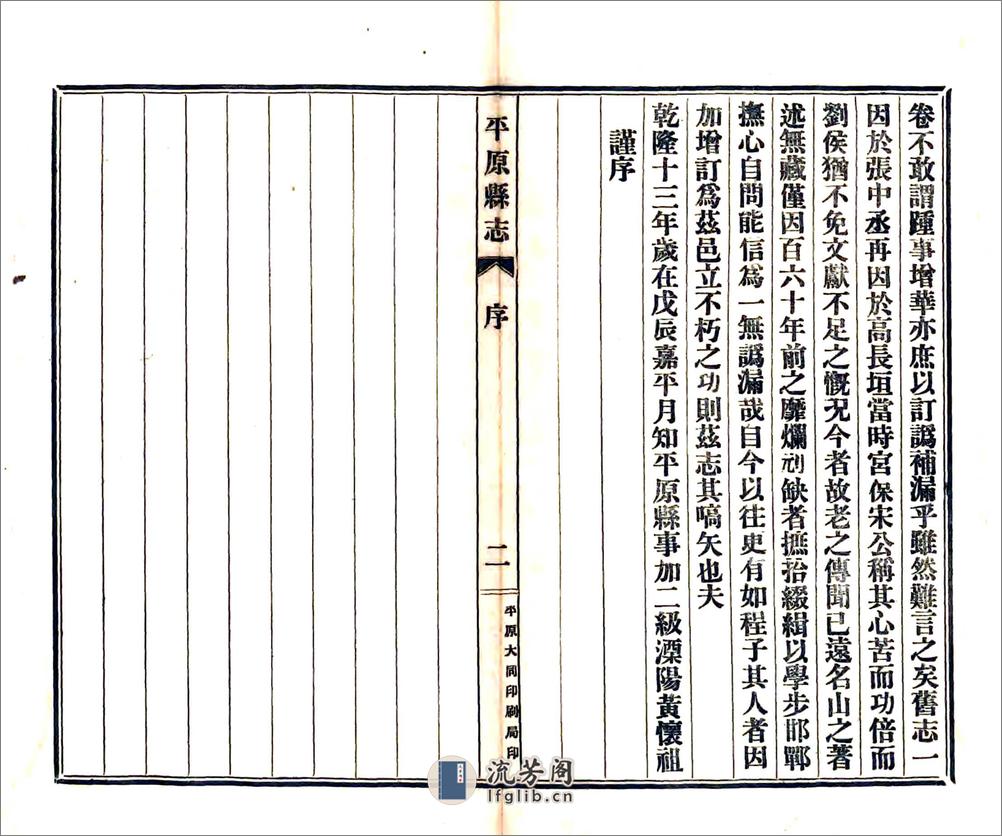 卷不敢謂踵事增華亦庶以訂譌補漏乎雖然難言之矣舊志一
因於張中丞再因於高長垣當時宮保宋公稱其心苦而功倍而
劉侯猶不免文獻不足之慨況今者故老之傳聞已遠名山之著
述無藏僅因百六十年前之靡爛刓缺者摭拾綴緝以學步邯鄲
撫心自問能信爲一無譌漏哉自今以往更有如程子其人者因
加增訂爲茲邑立不朽之功則茲志其嚆矢也夫
乾隆十三年歲在戊辰嘉平月知平原縣事加二級溧陽黃懷祖
謹序
平原縣志
序
二
平原大同印刷局印
流芳阁
lfglib.cn